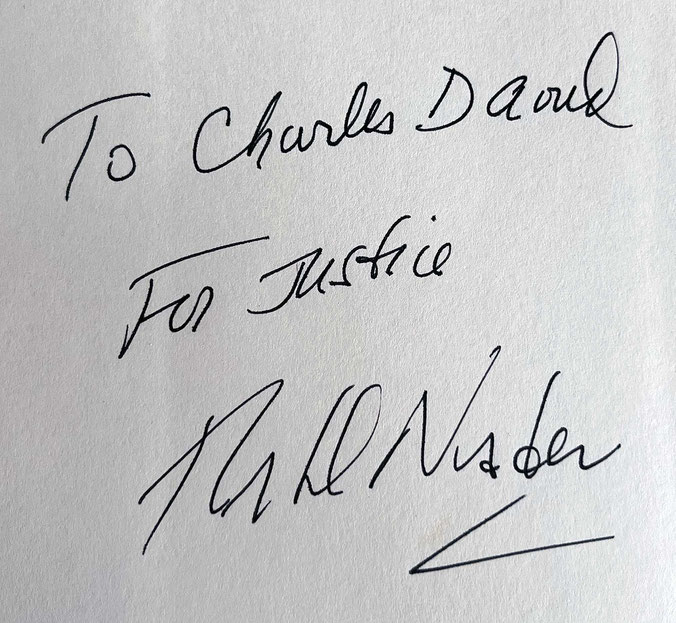 To Charles Daoud
For Justice
Ralph Nader